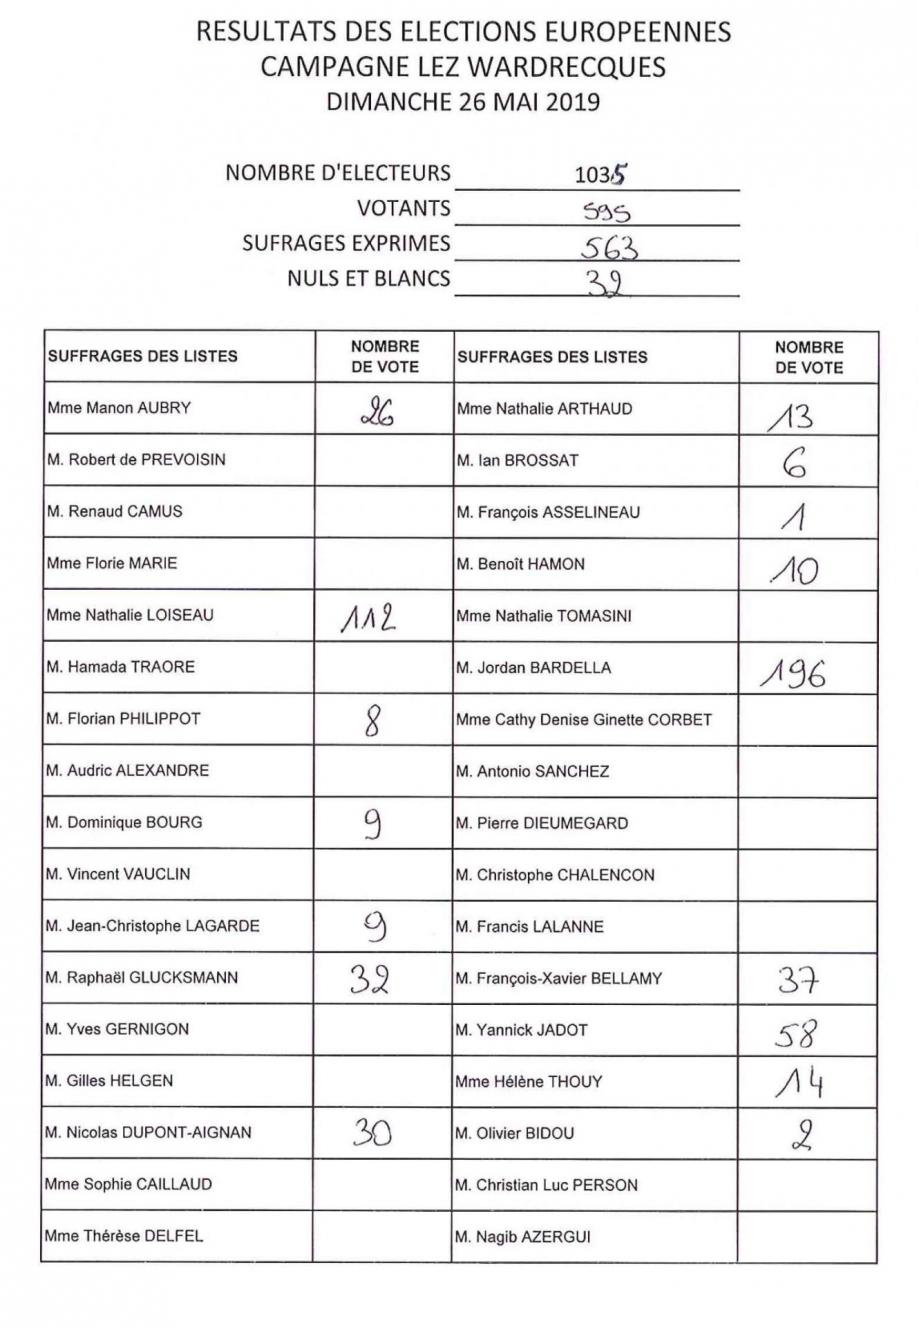 RESULTATS DES ELECTIONS EUROPEENNES
CAMPAGNE LEZ WARDRECQUES
DIMANCHE 26 MAI 2019
NOMBRE D'ELECTEURS 1035
VOTANTS 595
SUFRAGES EXPRIMES 563
NULS ET BLANCS 32
SUFFRAGES DES LISTES NOMBRE DE VOTE SUFFRAGES DES LISTES NOMBRE DE VOTE
Mme Manon AUBRY 26 Mme Nathalie ARTHAUD 13
M. Robert de PREVOISIN M. Ian BROSSAT 6
M. Renaud CAMUS M. François ASSELINEAU 1
Mme Florie MARIE M. Benoît HAMON 10
Mme Nathalie LOISEAU 112 Mme Nathalie TOMASINI
M. Hamada TRAORE M. Jordan BARDELLA 196
M. Florian PHILIPPOT 8 Mme Cathy Denise Ginette CORBET
M. Audric ALEXANDRE M. Antonio SANCHEZ
M. Dominique BOURG 9 M. Pierre DIEUMEGARD
M. Vincent VAUCLIN M. Christophe CHALENCON
M. Jean-Christophe LAGARDE 9 M. Francis LALANNE
M. Raphaël GLUCKSMANN 32 M. François-Xavier BELLAMY 37
M. Yves GERNIGON M. Yannick JADOT 58
M. Gilles HELGEN Mme Hélène THOUY 14
M. Nicolas DUPONT-AIGNAN 30 M. Olivier BIDOU 2
Mme Sophie CAILLAUD M. Christian Luc PERSON
Mme Thérèse DELFEL M. Nagib AZERGUI